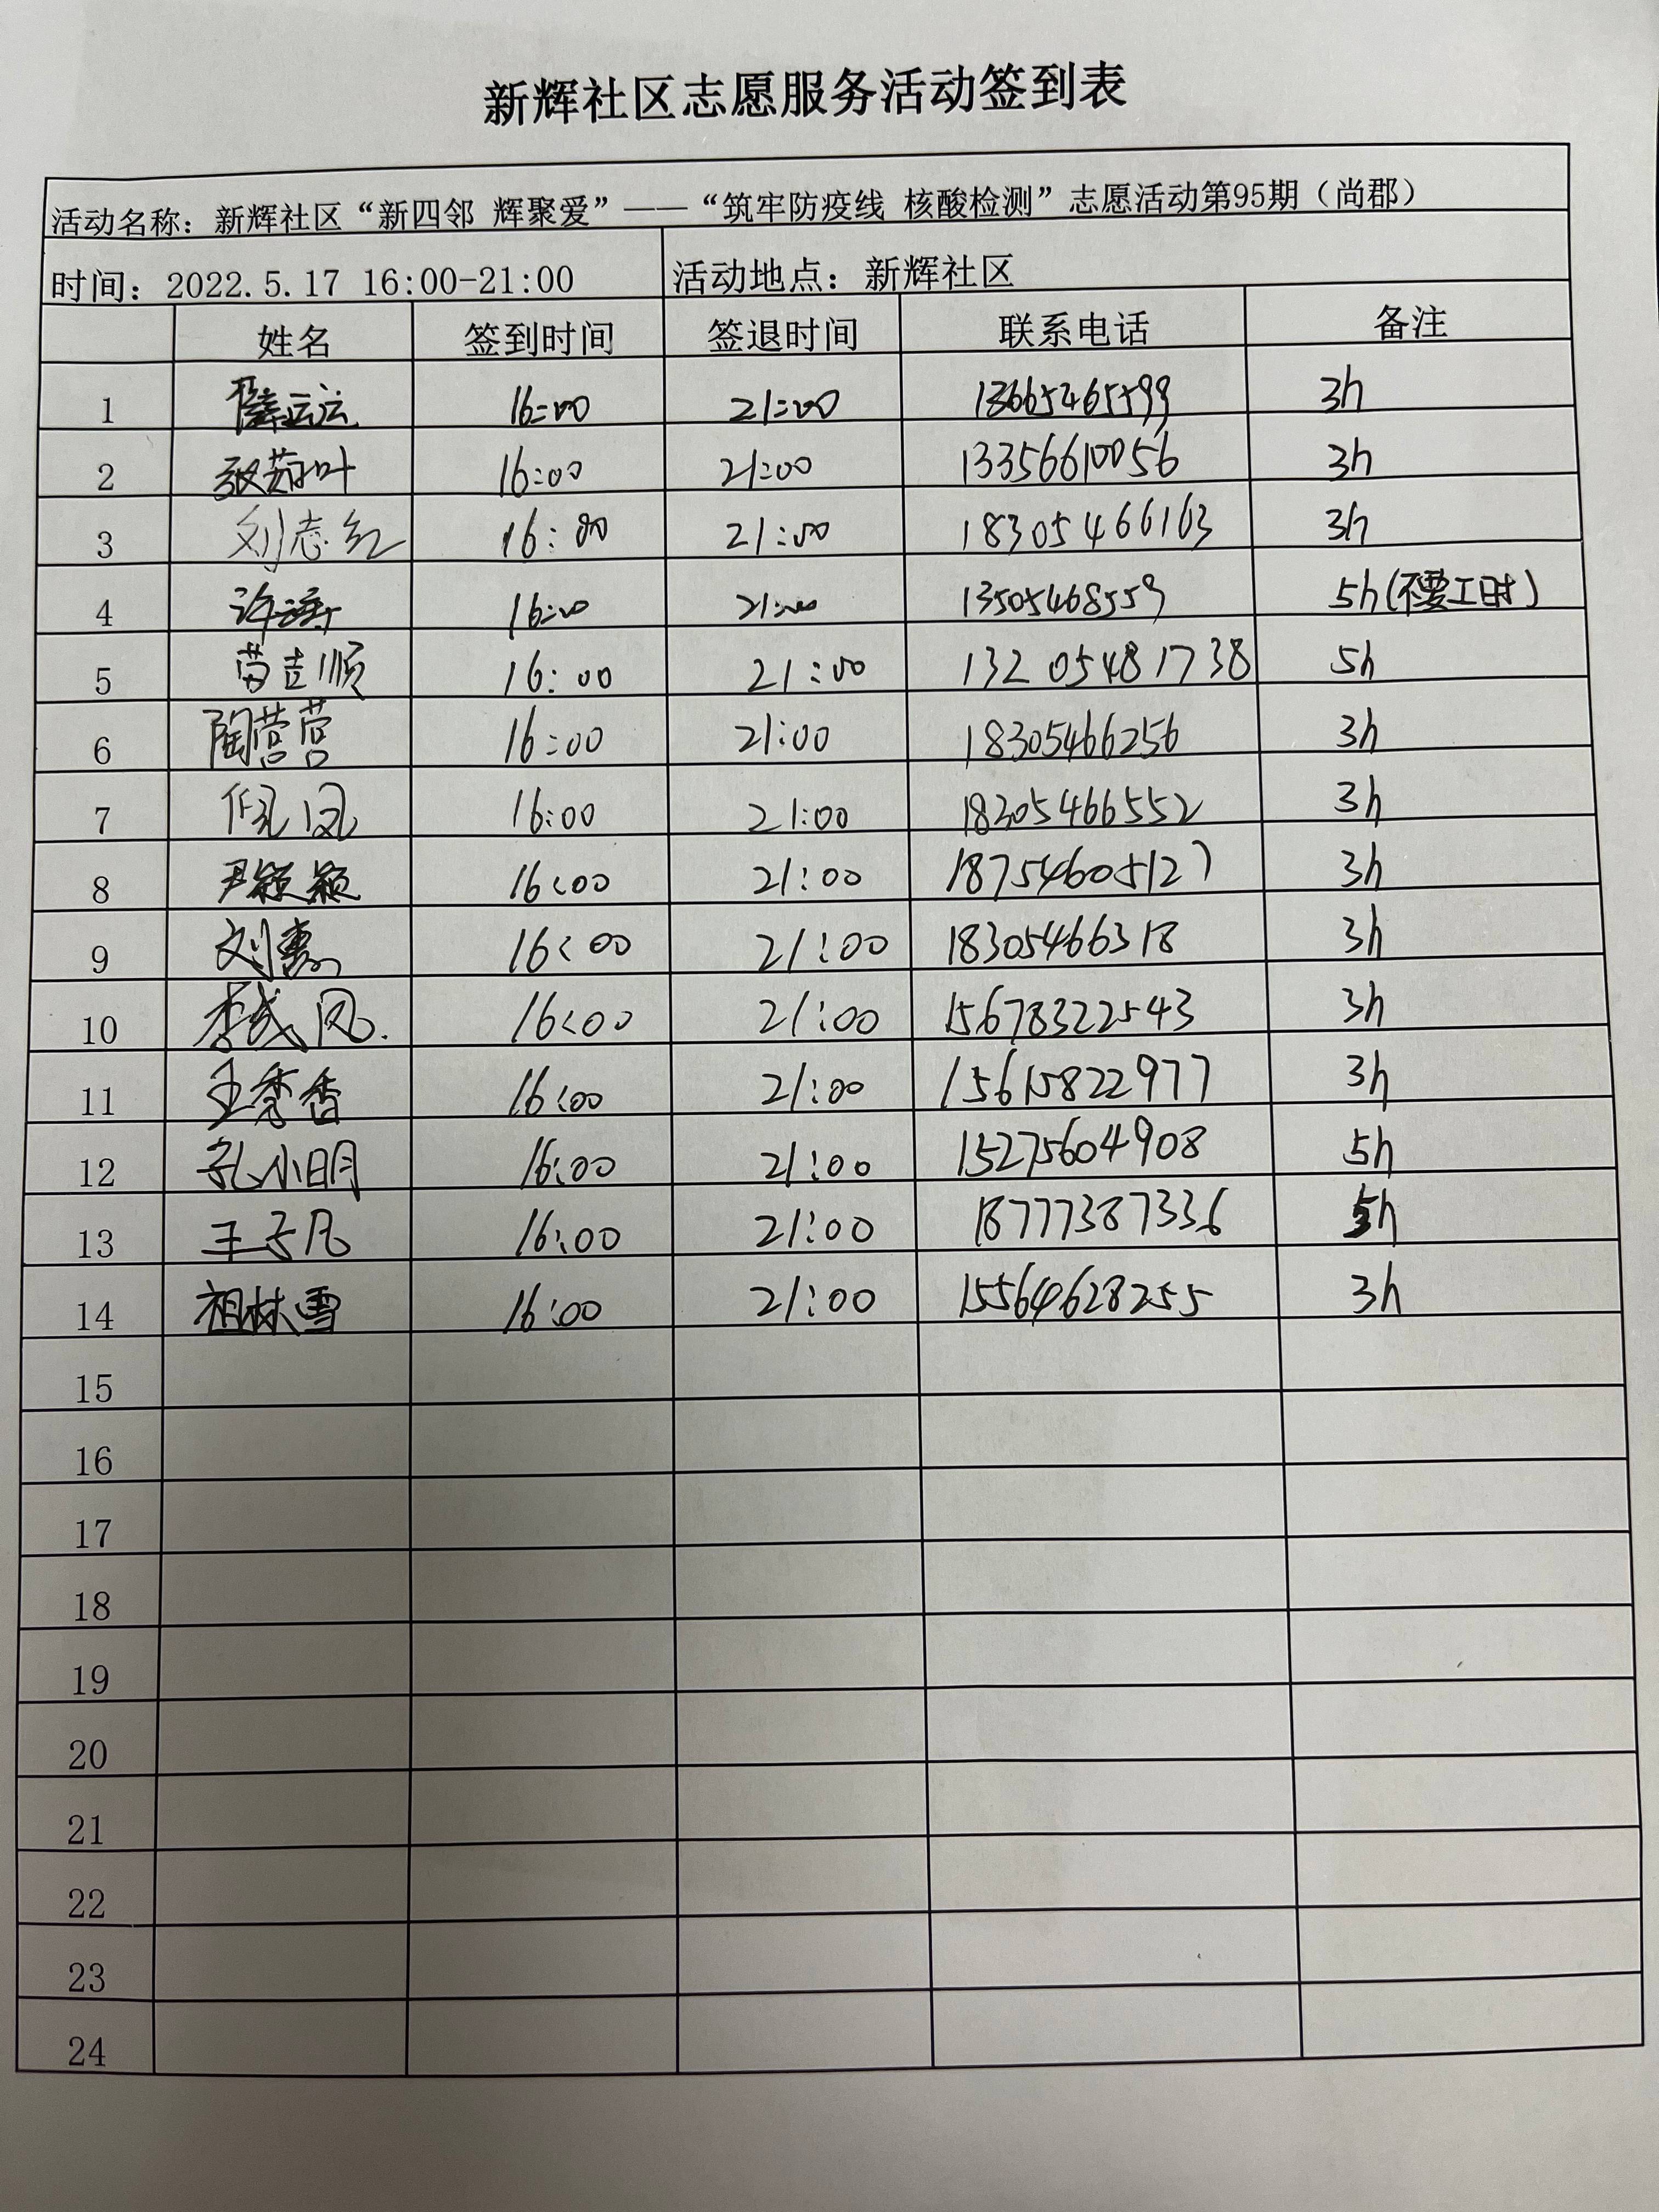 新辉社区志愿服务活动签到表
活动名称：新辉社区“新四邻 辉聚爱”——“筑牢防疫线 核酸检测”志愿活动第95期（尚郡）
时间：2022.5.17 16:00-21:00 活动地点：新辉社区
姓名 签到时间 签退时间 联系电话 备注
1 16:00 21:00 13665465599 3h
2 16:00 21:00 13356610056 3h
3 刘志红 16:00 21:00 18305466163 3h
4 许 16:00 21:00 13505468559 5h(不要工时)
5 苗吉顺 16:00 21:00 13205481738 5h
6 陶营营 16:00 21:00 18305466256 3h
7 16:00 21:00 18305466552 3h
8 尹颖颖 16:00 21:00 18754605127 3h
9 刘惠 16:00 21:00 18305466318 3h
10 16:00 21:00 15678322543 3h
11 王秀香 16:00 21:00 15615822977 3h
12 孔小明 16:00 21:00 15275604908 5h
13 王子凡 16:00 21:00 18777387336 5h
14 祖林雪 16:00 21:00 15564628255 3h
15
16
17
18
19
20
21
22
23
24